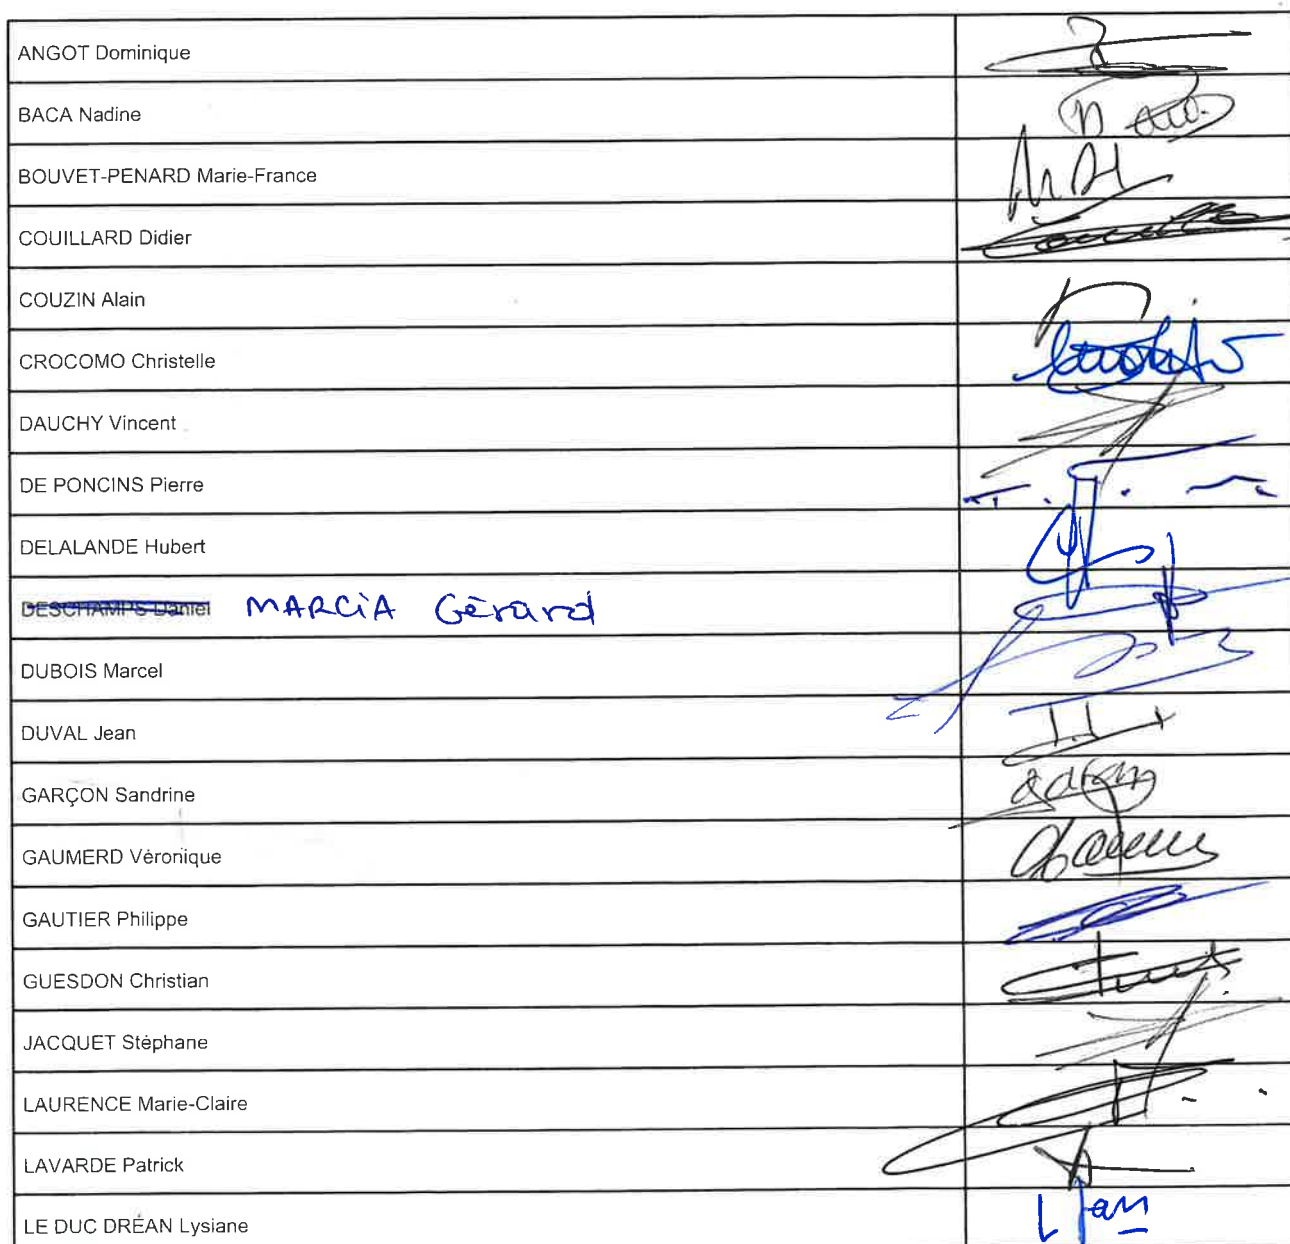 ANGOT Dominique
BACA Nadine
BOUVET-PENARD Marie-France
COUILLARD Didier
COUZIN Alain
CROCOMO Christelle
DAUCHY Vincent
DE PONCINS Pierre
DELALANDE Hubert
DESCHAMPS Daniel MARCIA Gérard
DUBOIS Marcel
DUVAL Jean
GARÇON Sandrine
GAUMERD Véronique
GAUTIER Philippe
GUESDON Christian
JACQUET Stéphane
LAURENCE Marie-Claire
LAVARDE Patrick
LE DUC DRÉAN Lysiane